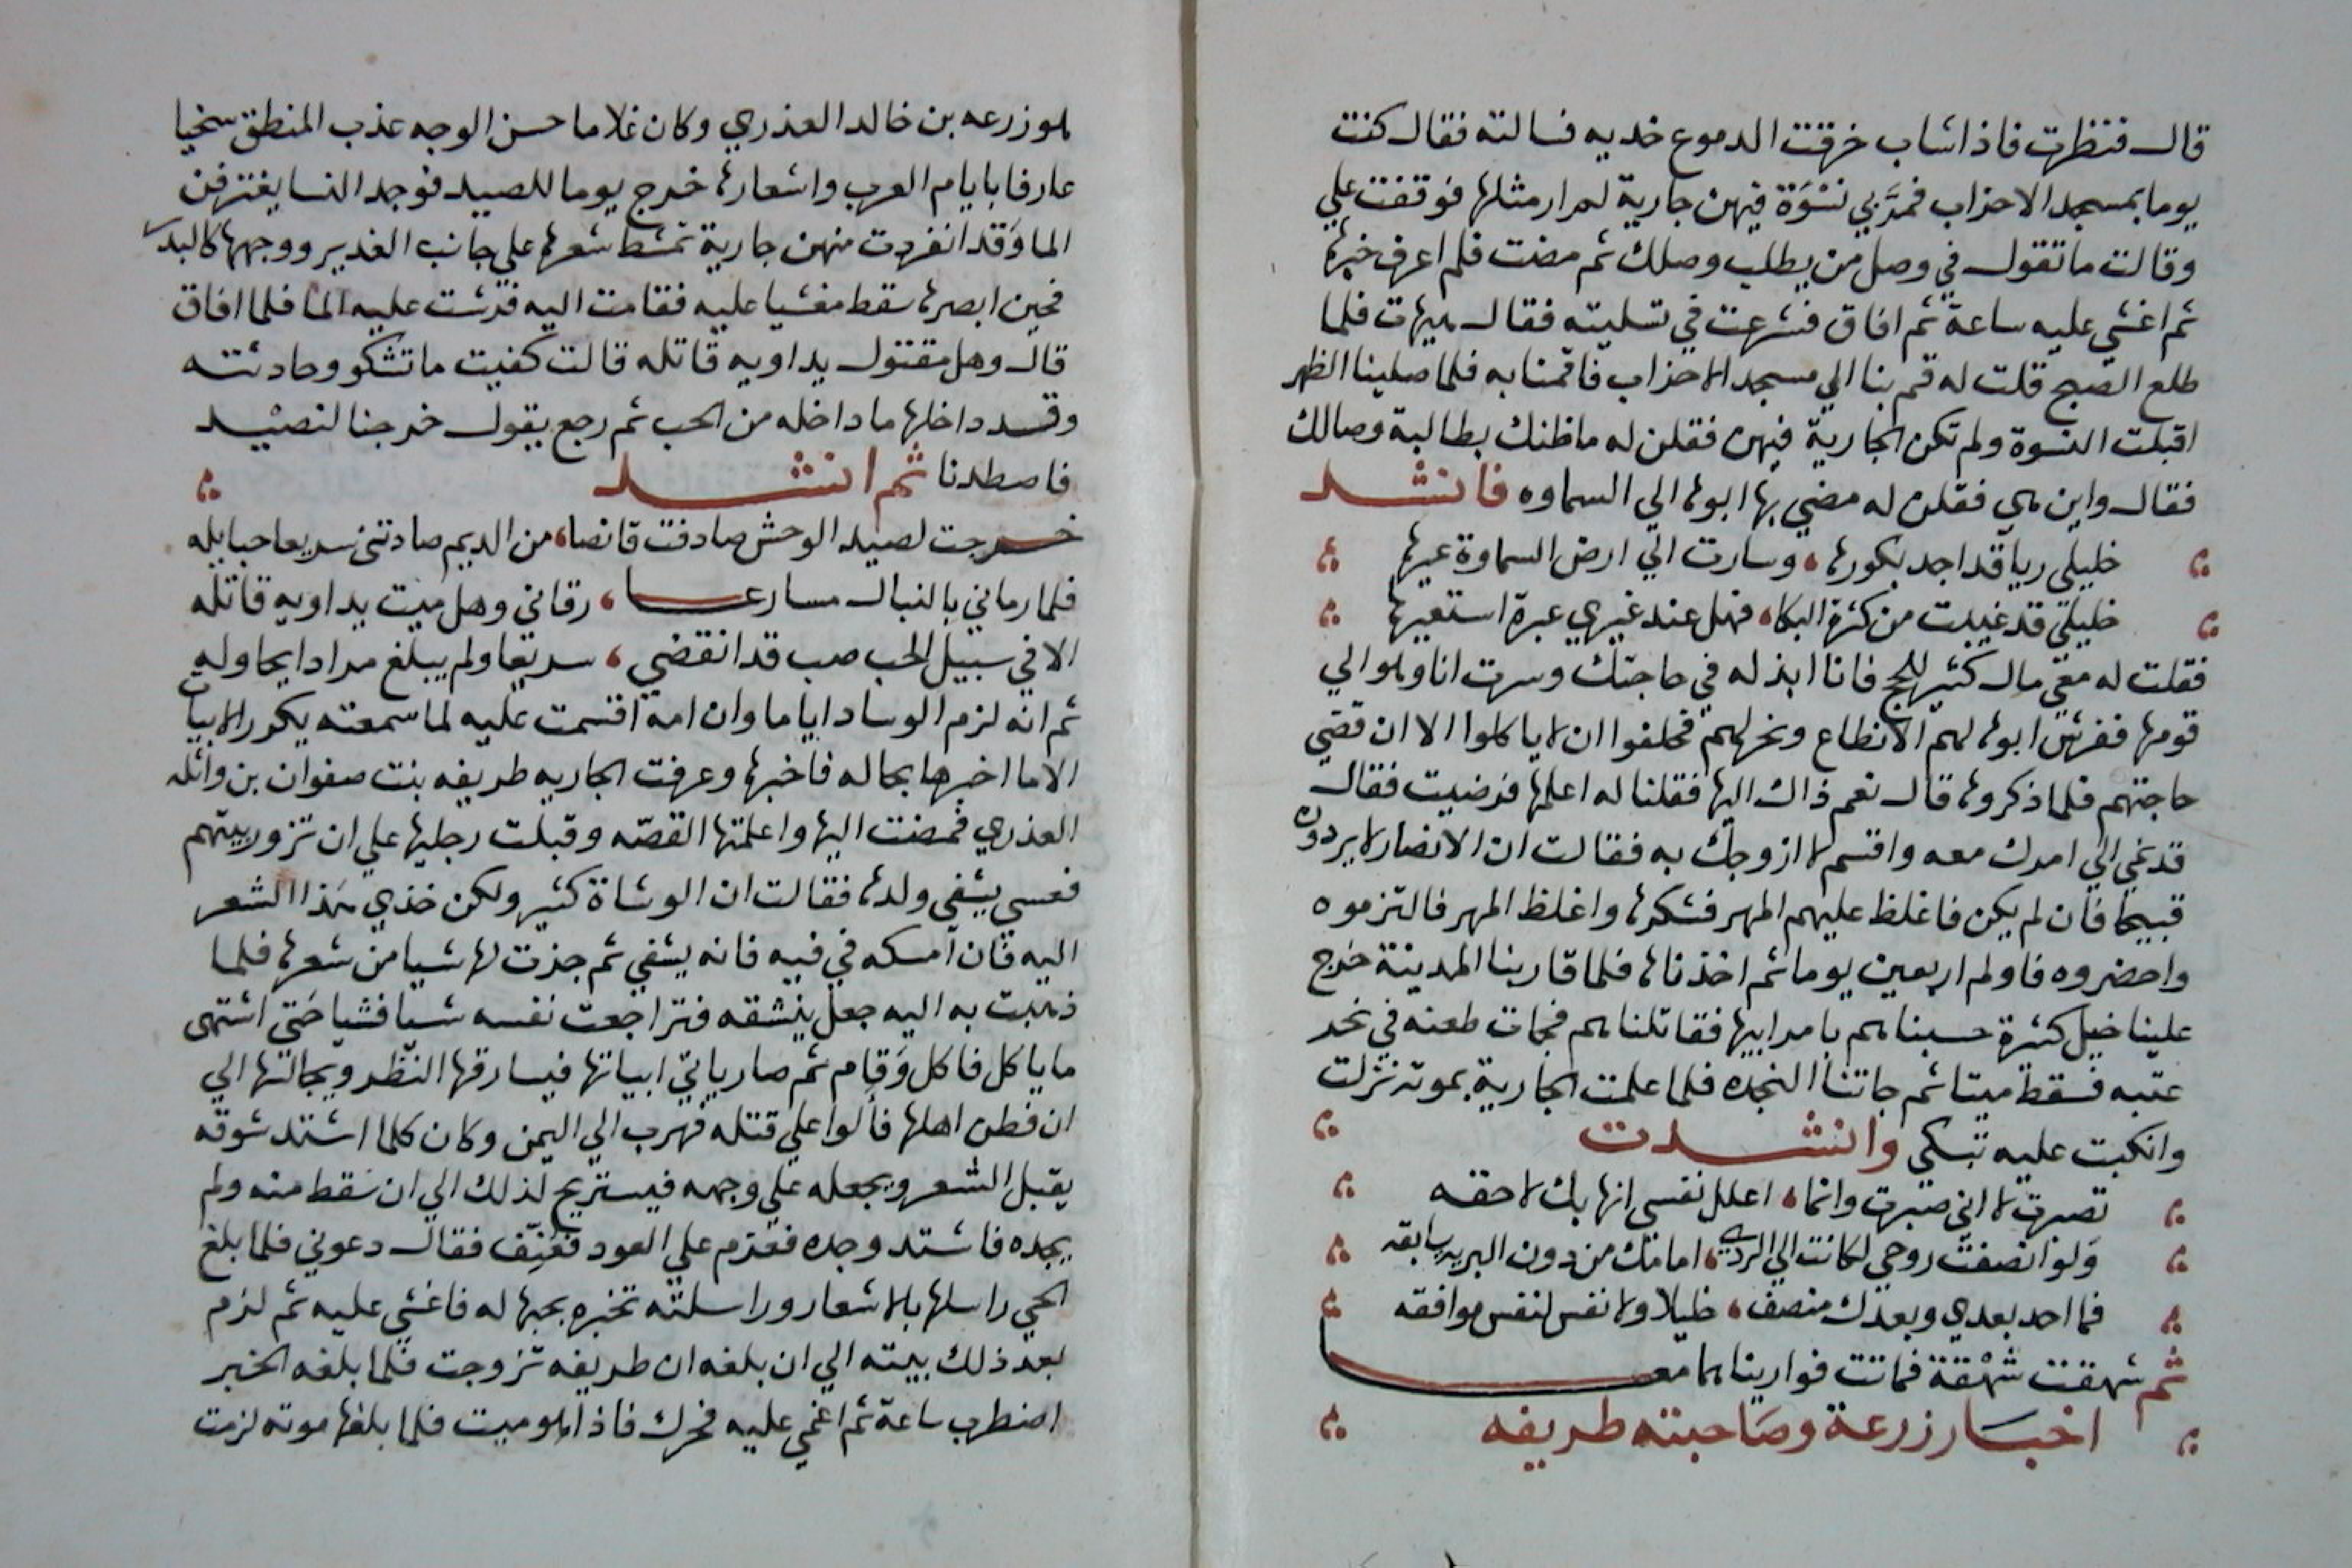 قال فنظرت فاذا شاب خرقت الدموع خديه فسالته فقال كنت
يوما بمسجد الاحزاب فمرَّ بي نسْوَة فيهن جارية لم ار مثلها فوقفت علي
وقالت ما تقول في وصل من يطلب وصلك ثم مضت فلم اعرف خبرها
ثم اغشي عليه ساعة ثم افاق فشرعت في تسليته فقال هيهات فلما
طلع الصبح قلت له قم بنا الي مسجد الاحزاب فاقمنا به فلما صلينا الظهر
اقبلت النسوة ولم تكن الجارية فيهن فقلن له ما ظنك بطالبة وصالك
فقال واين هي فقلن له مضي بها ابوها الي السماوه فانشد
خليلي ريا قد اجد بكورها، وسارت الي ارض السماوة عيرها
خليلي قد غيبت من كثرة البكا، فهل عند غيري عبرة استعيرها
فقلت له معي مال كثير للحج فانا ابذله في حاجتك وسرت انا وهو الي
قومها ففرش ابوها لهم الانطاع ونحر لهم فحلفوا ان لا ياكلوا الا ان قضي
حاجتهم فلما ذكروها قال نعم ذاك اليها فقلنا له اعلمها فرضيت فقال
قد نمي الي امرك معه واقسم لا ازوجك به فقالت ان الانصار لا يردون
قبيحا فان لم يكن فاغلظ عليهم المهر فشكرها واغلظ المهر فالتزموه
واحضروه فاولم اربعين يوما ثم اخذناها فلما قاربنا المدينة خرج
علينا خيل كثيرة حسبناهم بامر ابيها فقاتلناهم فجات طعنه في نحر
عتبه فسقط ميتا ثم جاتنا النجده فلما علمت الجارية بموته نزلت
وانكبت عليه تبكي وانشدت
تصبرت لا اني صبرت وانما، اعلل نفسي انها بك لاحقه
وَلو انصفت روحي لكانت الي الردي، امامك من دون البريه سابقه
فما احد بعدي وبعدك منصف، خليلا ولا نفس لنفس موافقه
ثم شهقت شهْقة فماتت فواريناهما معا
اخبار زرعة وصَاحبته طريفه
هو زرعه بن خالد العذري وكان غلاما حسن الوجه عذب المنطق سخيا
عارفا بايام العرب واشعارها خرج يوما للصيد فوجد النسا يغترفن
الما وَقد انفردت منهن جارية تمشط شعرها علي جانب الغدير ووجهها كالبدر
فحين ابصرها سقط مغشيا عليه فقامت اليه فرشت عليه الما فلما افاق
قال وهل مقتول يداويه قاتله قالت كفيت ما تشكو وحادثته
وقد داخلها ما داخله من الحب ثم رجع يقول خرجنا لنصيد
فاصطدنا ثم انشد
خرجت لصيد الوحش صادفت قانصا، من الريم صادتني سريعا حبايله
فلما رماني بالنبال مسارعا، رقاني وهل ميت يداويه قاتله
الا في سبيل الحب صب قد انقضي، سريعا ولم يبلغ مرادا يحاوله
ثم انه لزم الوساد اياما وان امه اقسمت عليه لما سمعته يكرر الابيات
الا ما اخبرها بحاله فاخبرها وعرفت الجاريه طريفه بنت صفوان بن واثله
العذري فمضت اليها واعلمتها القصه وقبلت رجليها علي ان تزور بيتهم
فعسي يشفي ولدها فقالت ان الوشاة كثير ولكن خذي هذا الشعر
اليه فان امسكه في فيه فانه يشفي ثم جذت لها شيا من شعرها فلما
ذهبت به اليه جعل ينشقه فتراجعت نفسه شيا فشيا حَتي اشتهي
ما ياكل فاكل وَقام ثم صار ياتي ابياتها فيسارقها النظر ويجالسها الي
ان فطن اهلها فالوا علي قتله فهرب الي اليمن وكان كلما اشتد شوقه
يقبل الشعر ويجعله علي وجهه فيستريح لذلك الي ان سقط منه ولم
يجده فاشتد وجده فعزم علي العود فعنِّف فقال دعوني فلما بلغ
الحي راسلها بالاشعار وراسلته تخبره بحبها له فاغشي عليه ثم لزم
بعد ذلك بيته الي ان بلغه ان طريفه تزوجت فلما بلغه الخبر
اضطرب ساعة ثم اغمي عليه فحرك فاذا هو ميت فلما بلغها موته لزمت